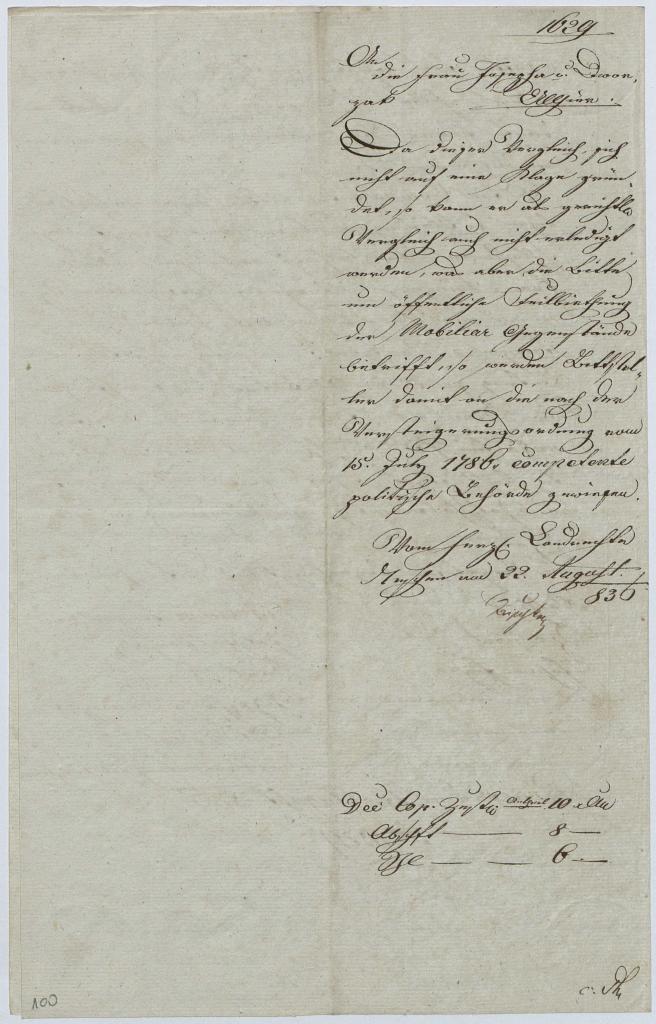 1629
An
die Frau Josepha v. Dwor¬
zak
Da dieser Vergleich sich
nicht auf eine Klage grün¬
det, so kann er als gerichtl.
Vergleich auch nicht erledigt
werden, was aber die Bitte
um öffentliche Feilbiethung
der Mobiliar Gegenstände
betrifft, so werden Bittstel¬
ler damit an die nach der
Versteigerungsordnung vom
15. July 1786 competente
politische Behörde gewiesen.
Vom herzgl. Landrechte
Teschen am 22. August
836
Dec Cop. 10
Abschft — 8 —
— — 6 —
100